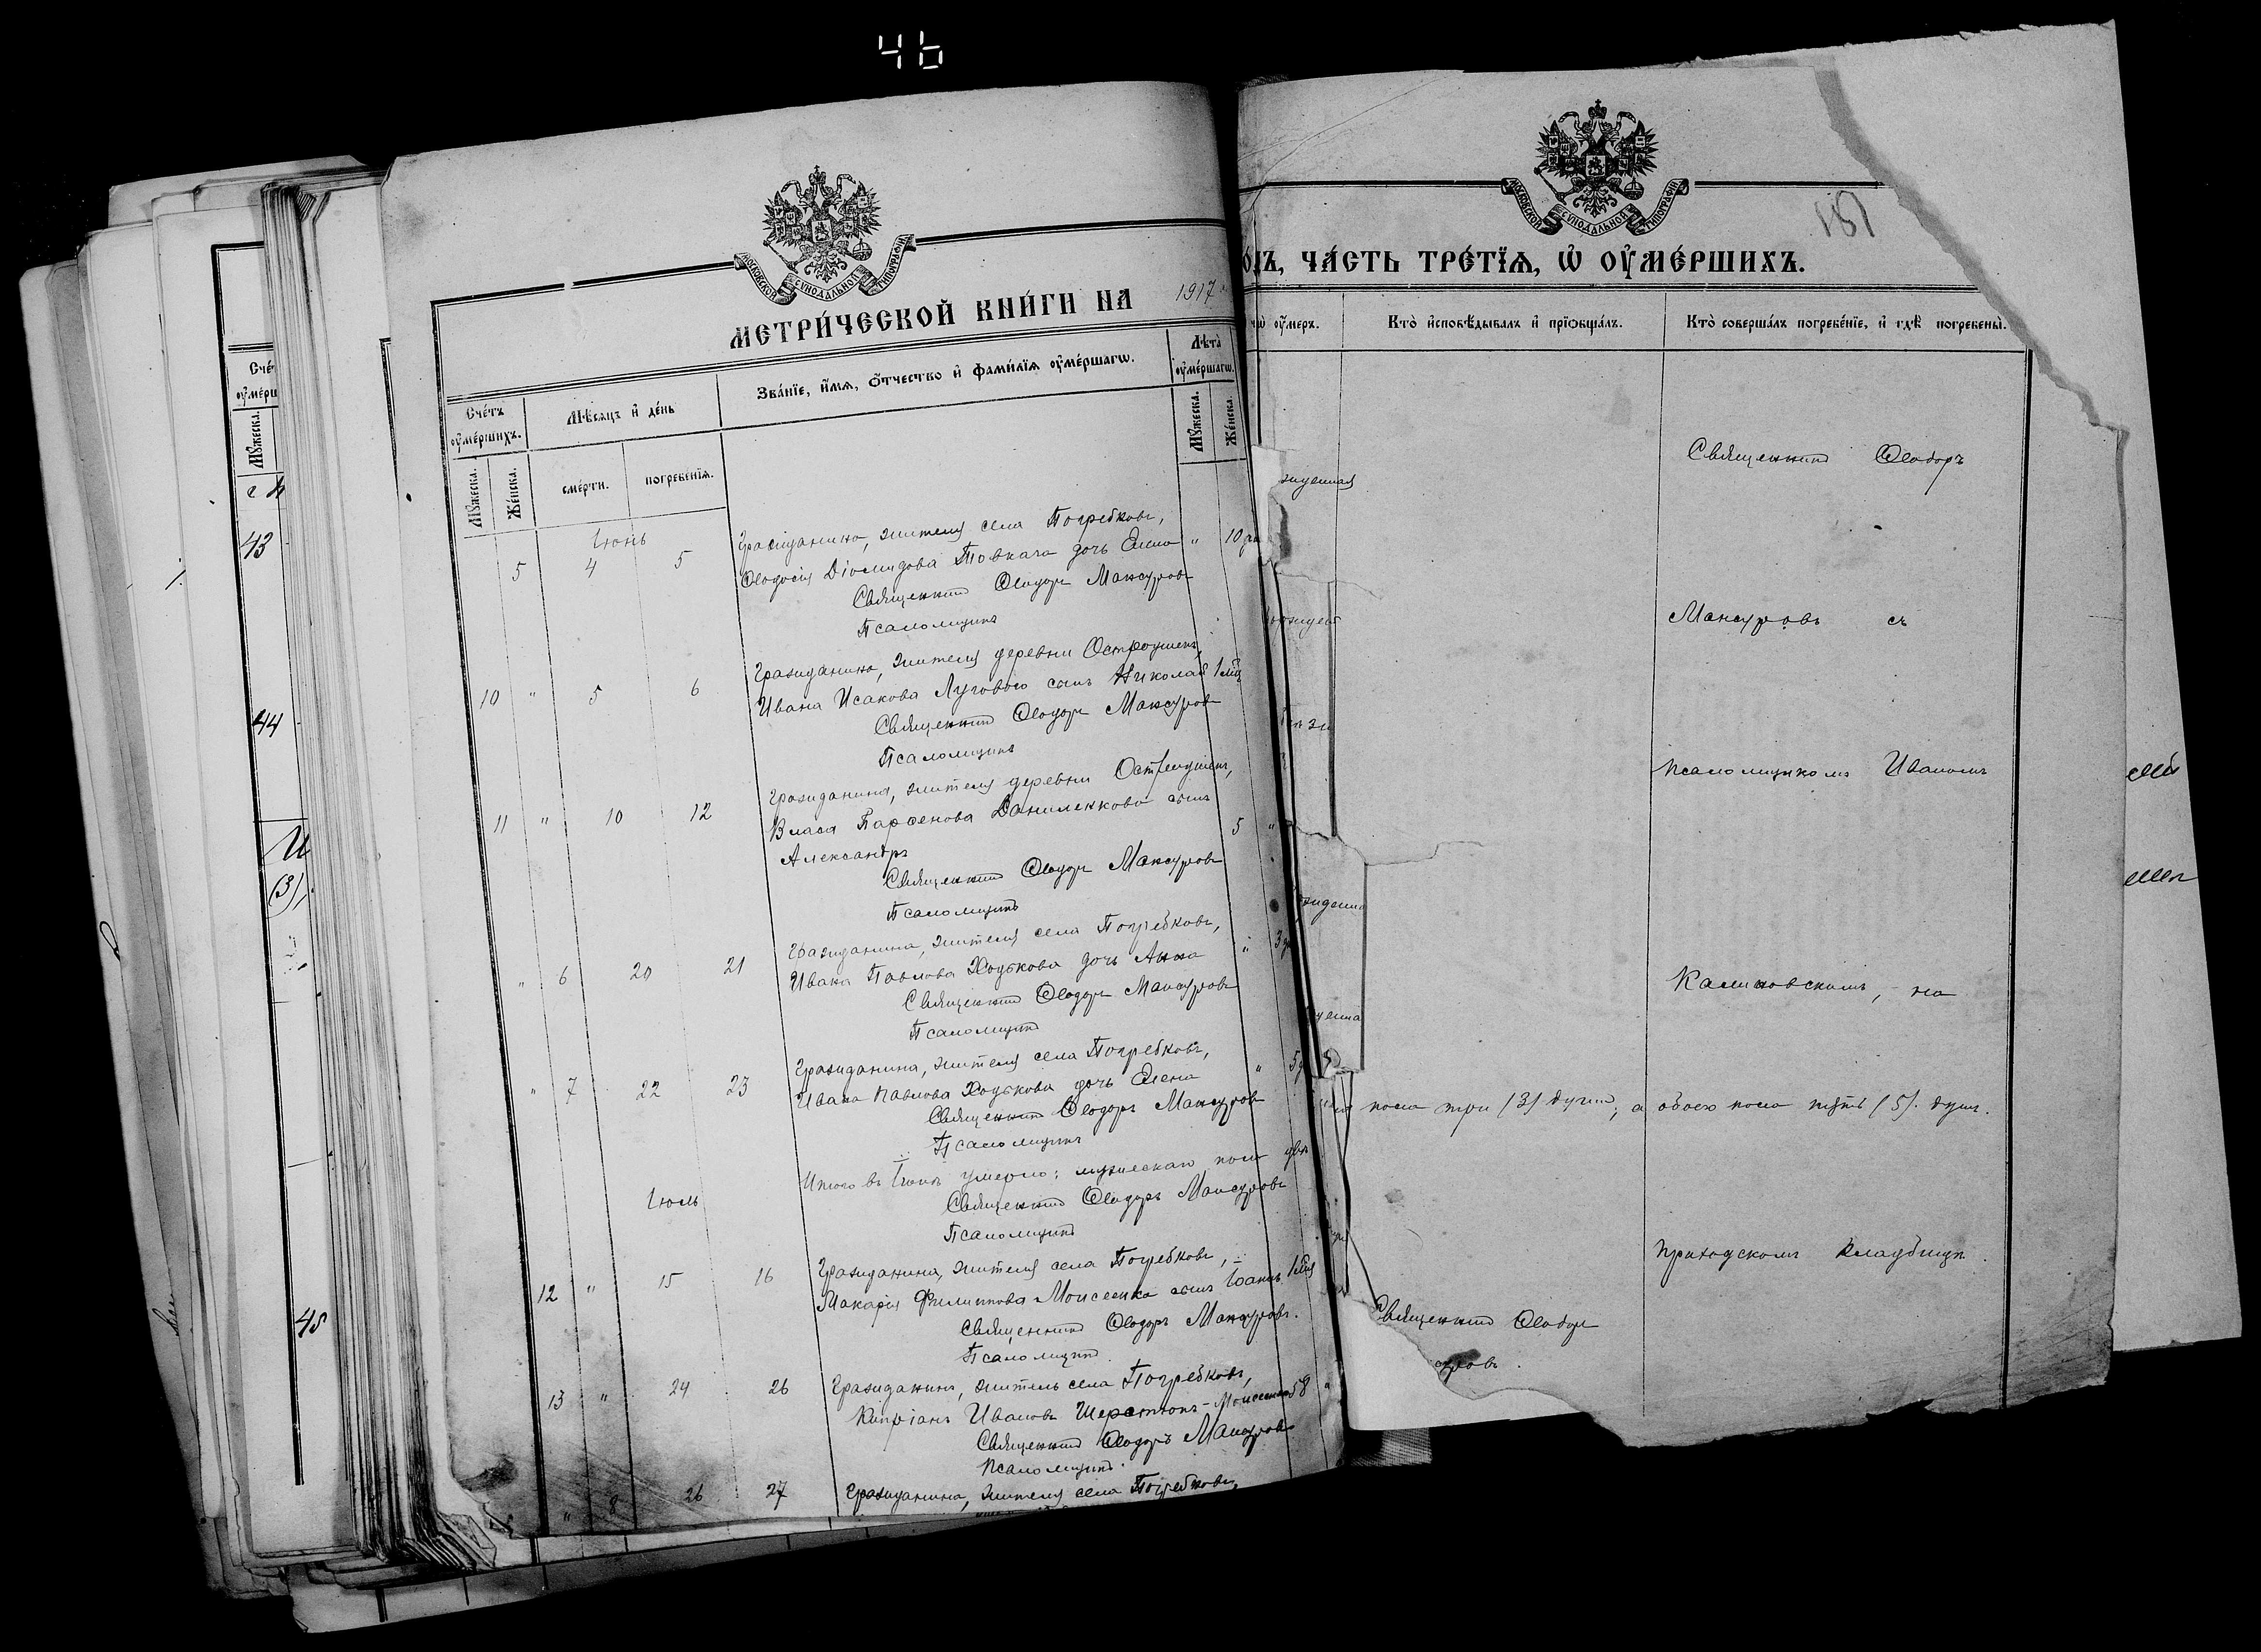 46
МОСКОВСКОЙ СУНОДАЛЬНОЙ ТИПОГРАФІИ
МЕТРИ́ЧЕСКОЙ КНИ́ГИ НА 1917
Сче́тъ оу҆ме́ршихъ.
Мѣ́сяцъ и҆ де́нь
Зва́нїе, и҆́мѧ, ѻ҆́тчество и҆ фами́лїѧ оу҆ме́ршагѡ.
Лѣ́та оу҆ме́ршагѡ.
Мꙋ́жеска.
Же́нска.
сме́рти.
погребе́нїѧ.
Мꙋ́жеска.
Же́нска.
Іюнь
5 4 5 Гражданина, жителя села Погребковъ,
Ѳеодосія Діомидова Товкача дочь Елена " 10
Священникъ Ѳеодоръ Мансуровъ
Псаломщикъ
10 " 5 6 Гражданина, жителя деревни Остроушекъ,
Ивана Исакова Лугового сынъ Николай 1
Священникъ Ѳеодоръ Мансуровъ
Псаломщикъ
11 " 10 12 Гражданина, жителя деревни Остроушекъ,
Власа Парѳенова Даниленкова сынъ
Александръ 5 "
Священникъ Ѳеодоръ Мансуровъ
Псаломщикъ
" 6 20 21 Гражданина, жителя села Погребковъ,
Ивана Павлова Ходькова дочь Анна " 3
Священникъ Ѳеодоръ Мансуровъ
Псаломщикъ
" 7 22 23 Гражданина, жителя села Погребковъ,
Ивана Павлова Ходькова дочь Елена " 5
Священникъ Ѳеодоръ Мансуровъ
Псаломщикъ
Итого въ Іюнѣ умерло: мужескаго пола два
Священникъ Ѳеодоръ Мансуровъ
Псаломщикъ
Іюль
12 " 15 16 Гражданина, жителя села Погребковъ,
Макарія Филиппова Моисеенка сынъ Іоаннъ 1
Священникъ Ѳеодоръ Мансуровъ.
Псаломщикъ.
13 " 24 26 Гражданинъ, житель села Погребковъ,
Кипріанъ Ивановъ Шерстюкъ-Моисеенко 58 "
Священникъ Ѳеодоръ Мансуровъ
Псаломщикъ.
" 8 26 27 Гражданина, жителя села Погребковъ,
МОСКОВСКОЙ СУНОДАЛЬНОЙ ТИПОГРАФІИ
181
ЧА́СТЬ ТРЕ́ТЇѦ, Ѡ҆ ОУ҆МЕ́РШИХЪ.
оу҆́меръ.
Кто̀ и҆сповѣ́дывалъ и҆ прїѡбща́лъ.
Кто̀ соверша́лъ погребе́нїе, и҆ гдѣ̀ погребены̀.
Священникъ Ѳеодоръ
Мансуровъ съ
псаломщикомъ Иваномъ
Калиновскимъ, на
пола три (3) души, а обоего пола пять (5) душъ.
приходскомъ кладбищѣ.
Священникъ Ѳеодоръ
Сче́
оу҆ме́рш
Мꙋ́жеска.
43
44
(3),
45